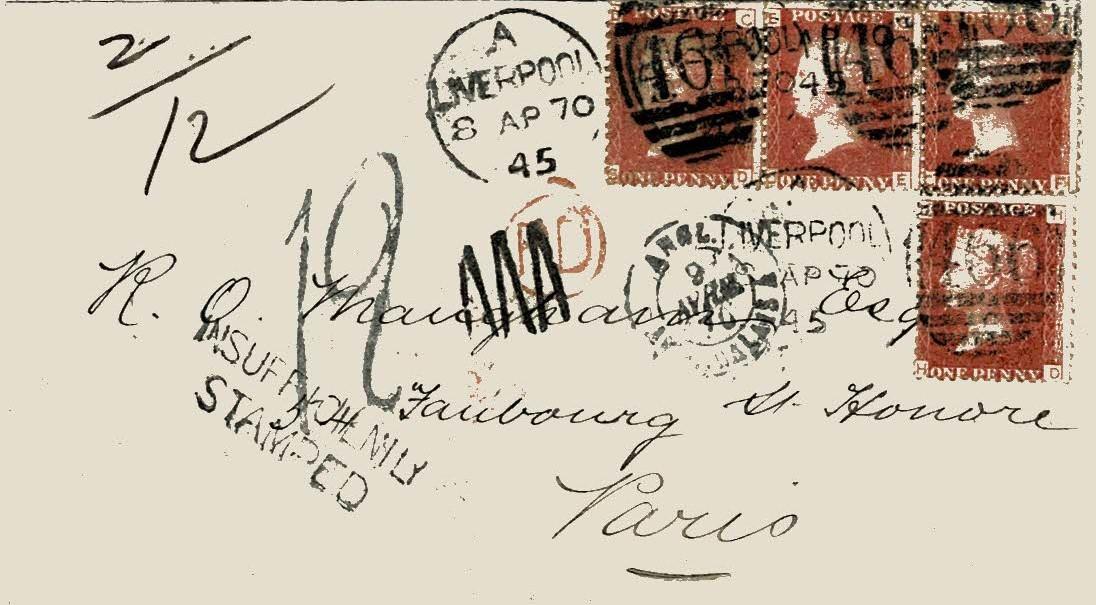 2/12
A
LIVERPOOL
8 AP 70
45
POSTAGE C
ONE PENNY D
POSTAGE
ONE PENNY E
POSTAGE
ONE PENNY F
466
PD
12
ANGL.
9
LIVERPOOL
AP 70
45
POSTAGE H
H ONE PENNY D
R. O. Maugham Esq
Faubourg St. Honore
Paris
INSUFFICIENTLY
STAMPED